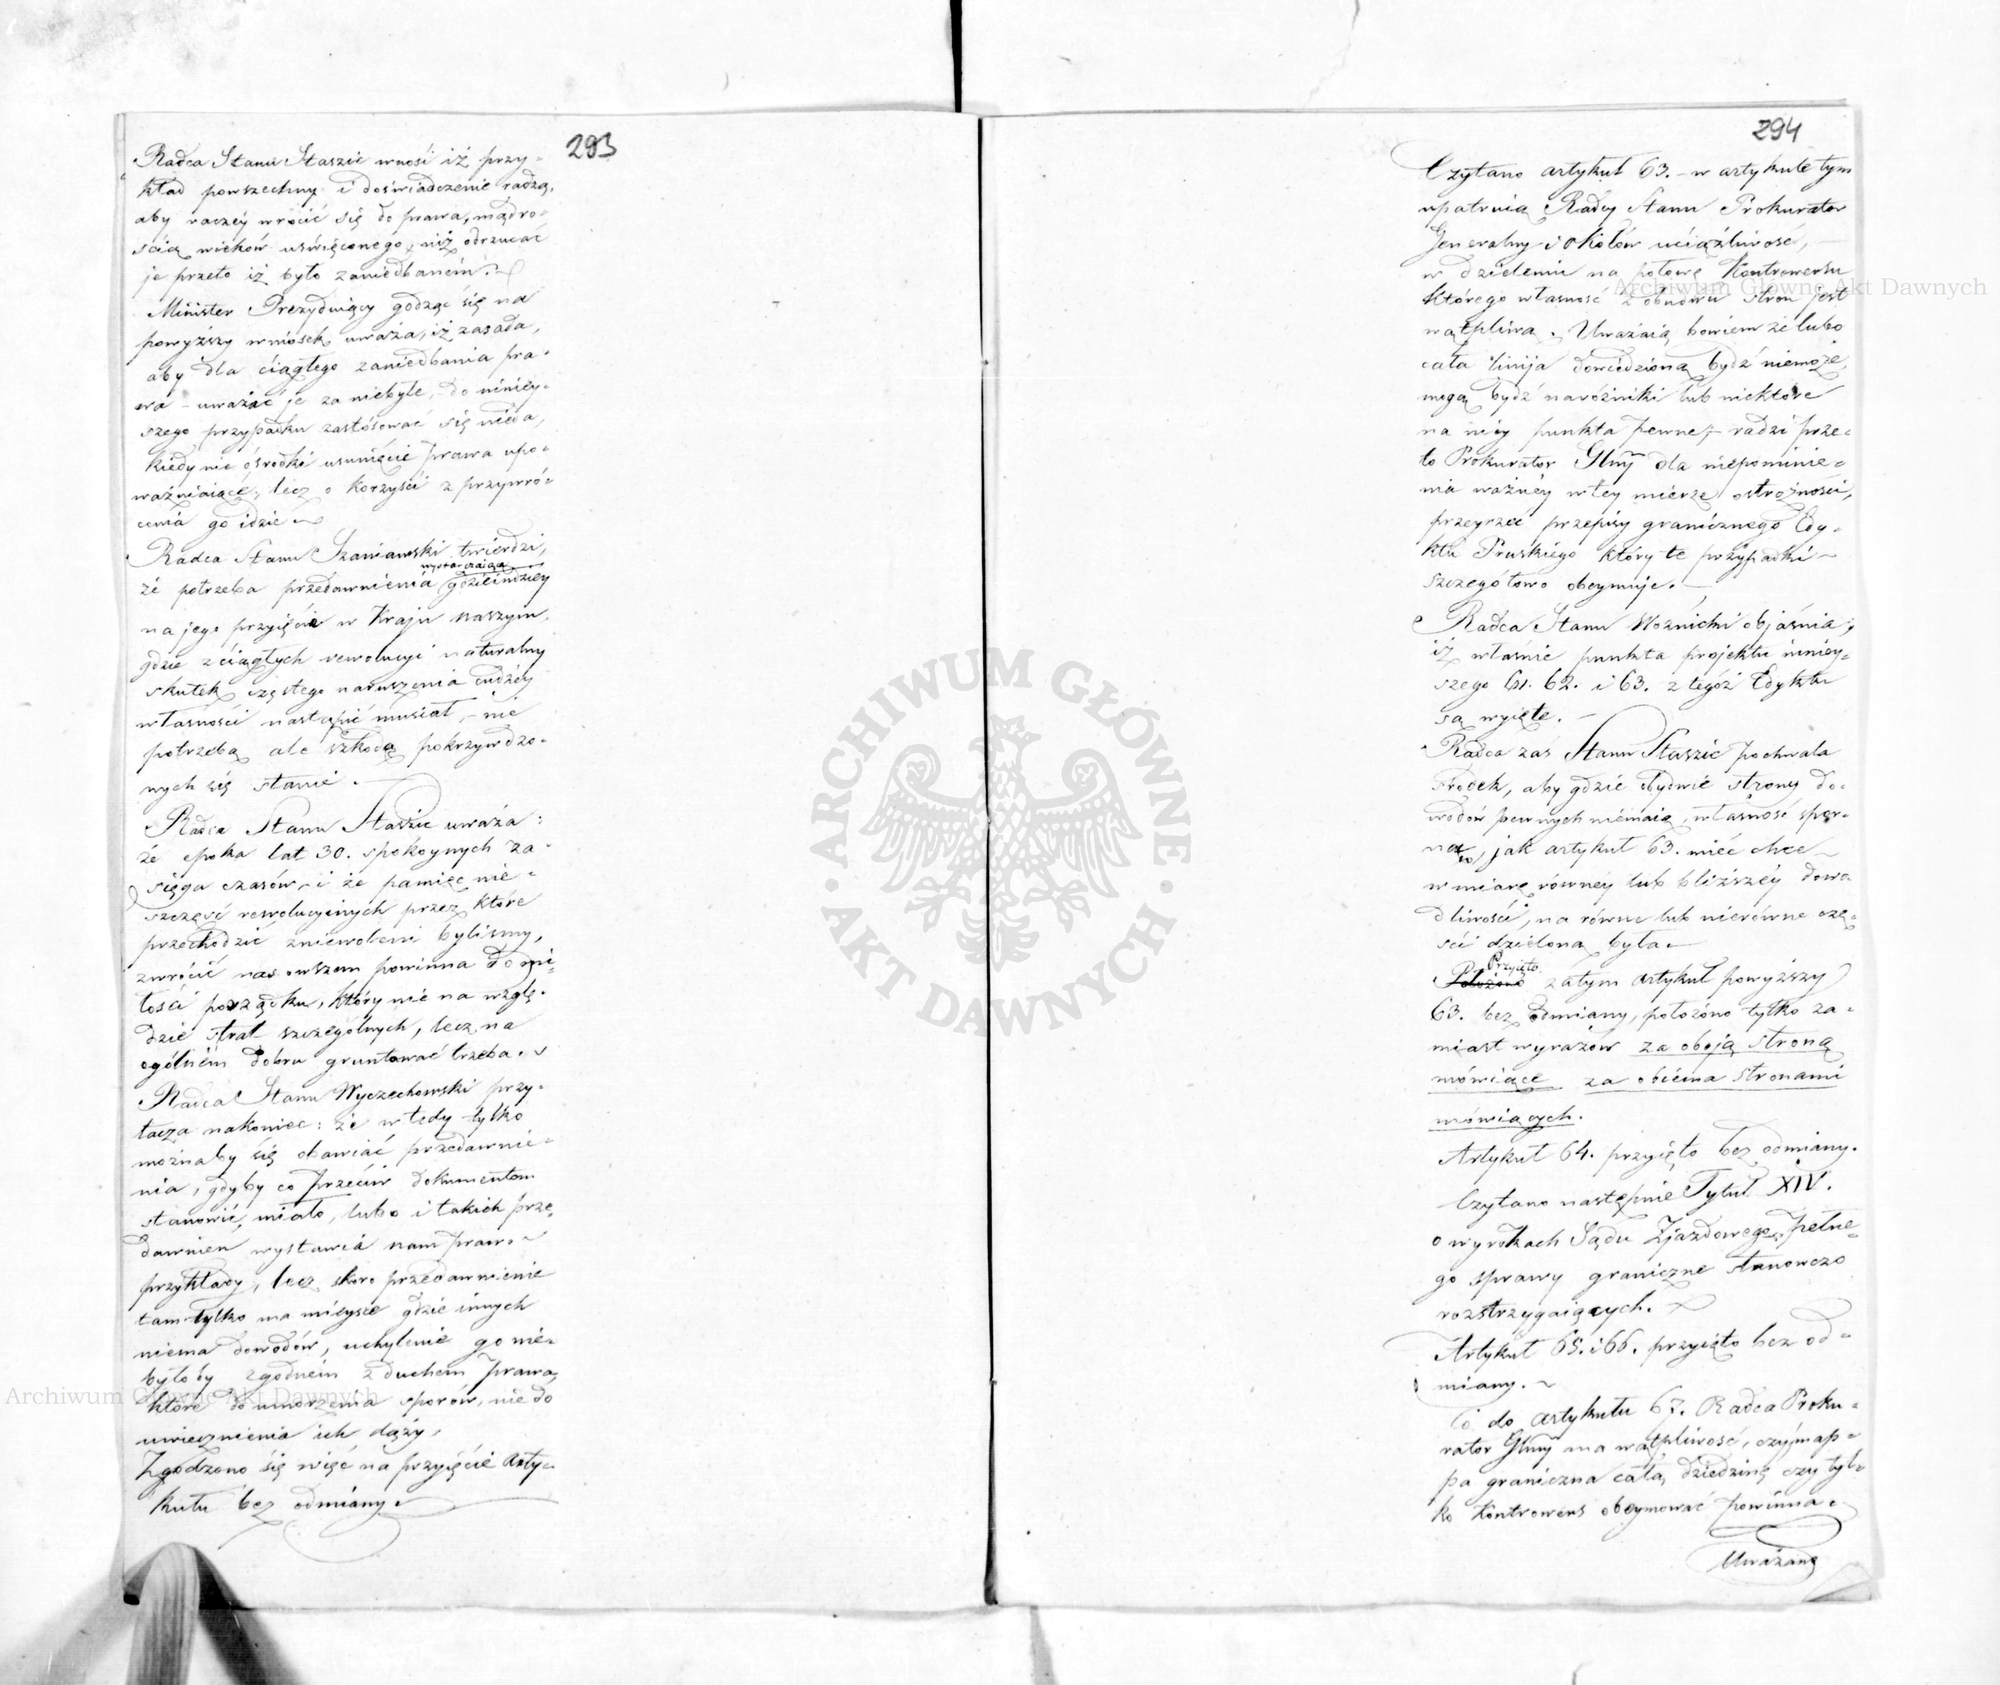 293
Radca Stanu Staszic wnosi iż przy-
kład powszechny i doświadczenie radzą,
aby raczey wrócić się do prawa, mądro-
ścią wieków uświęconego, niż odrzucać
je przeto iż było zaniedbanem.
Minister Prezyduiący godząc się na
powyższy wniosek uważa, iż zasada,
aby dla ciągłego zaniedbania pra-
wa - uważać je za niebyłe, - do niniey-
szego przypadku zastósować się nieda,
kiedy nie o środki usunięcie prawa upo-
ważniaiące, lecz o korzyści z przywró-
cenia go idzie
Radca Stanu Szaniawski twierdzi,
wystarczaiąca
że potrzeba przedawnienia gdzieindziey
na jego przyięcie w Kraju naszym,
gdzie z ciągłych rewolucyi naturalny
skutek częstego naruszenia cudzéy
własności nastąpić musiał, - nie
potrzebą ale szkodą pokrzywdzo-
nych się stanie.
Radca Stanu Staszic uważa:
że epoka lat 30. spokoynych za-
sięga czasów, i że pamięć nie-
szczęść rewolucyinych przez które
przechodzić zniewoleni byliśmy,
zwrócić nas owszem powinna do mi-
łości porządku, który nie na wzglę-
dzie strat szczególnych, lecz na
ogólném dobru gruntować trzeba.
Radca Stanu Wyczechowski przy-
tacza nakoniec: że wtedy tylko
możnaby się obawiać przedawnie-
nia, gdyby co przeciw dokumentom
stanowić miało, lubo i takich prze-
dawnien wystawia nam prawo
przykłady, lecz skoro przedawnienie
tam tylko ma mieysce gdzie innych
niema dowodów, uchylenie go nie-
byłoby zgodném z duchem prawa,
które do umorzenia sporów, nie do
uwiecznienia ich dąży,
Zgodzono się więc na przyięcie Arty-
kułu bez odmiany.
294
Czytano artykuł 63. - w artykule tym
upatruią Radcy Stanu Prokurator
Generalny i Okołów uciążliwość,
w dzieleniu na połowę Kontrowersu
którego własność z obudwu stron jest
wątpliwa. Uważaią bowiem że lubo
cała linija dowiedzioną bydź niemoże,
mogą bydź narożniki lub niektóre
na niéy punkta pewne; - radzi prze-
to Prokurator Glny dla niepominie-
nia ważnéy w tey mierze ostrożności,
przeyrzeć przepisy granicznego Edy-
ktu Pruskiego który te przypadki
szczegółowo obeymuje.
Radca Stanu Woźnicki objaśnia,
iż właśnie punkta projektu niniey-
szego 61. 62. i 63. z tegóż Edyktu
są wyięte. -
Radca zaś Stanu Staszic pochwala
środek, aby gdzie obydwie strony do-
wodów pewnych niémaią, własność spor-
na, jak artykuł 63. mieć chce
w miarę równey lub bliższéy dowo-
dliwości, na równe lub nierówne czę-
ści dzielona była.
Przyięto
Położono zatym artykuł powyższy
63. bez odmiany, położono tylko za-
miast wyrazów za oboją stroną
mówiące za obiéma stronami
mówiących.
Artykuł 64. przyięto bez odmiany.
Czytano następnie Tytuł XIV.
o wyrokach Sądu Zjazdowego, pełne-
go sprawy graniczne stanowczo
rozstrzygaiących.
Artykuł 65. i 66. przyięto bez od-
miany.
Co do artykułu 67. Radca Proku-
rator Glny ma wątpliwość, czyj map-
pa graniczna całą dziedzinę czy tyl-
ko Kontrowers obeymować powinna.
Uważano
ARCHIWUM GŁÓWNE
AKT DAWNYCH
Archiwum Główne Akt Dawnych
Archiwum Główne Akt Dawnych